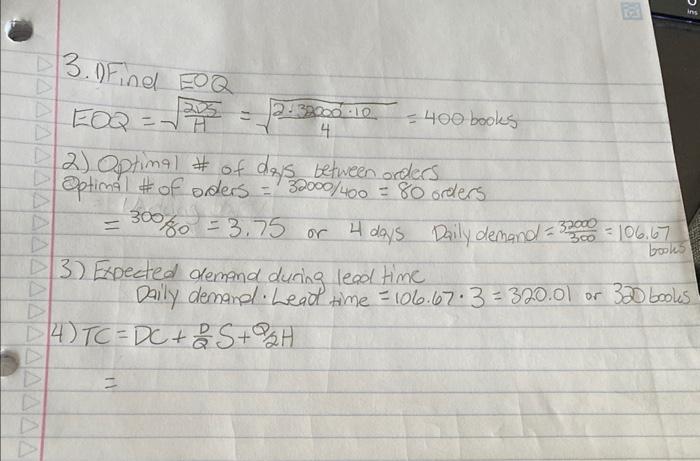 3. 1) Find EOQ
EOQ = √(2DS/H) = √(2·32000·10/4) = 400 books
2) Optimal # of days between orders
Optimal # of orders = 32000/400 = 80 orders
= 300/80 = 3.75 or 4 days Daily demand = 32000/300 = 106.67 books
3) Expected demand during lead time
Daily demand · Lead time = 106.67 · 3 = 320.01 or 320 books
4) TC = DC + D/Q S + Q/2 H
=
ins